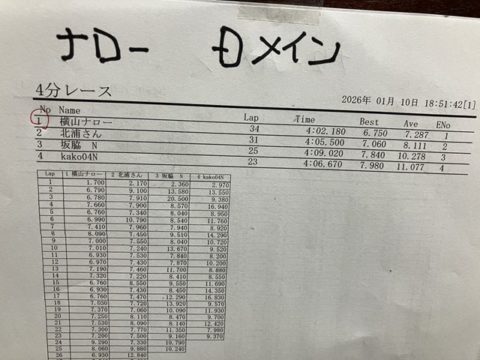 ナロー Bメイン
4分レース
2026年 01月 10日 18:51:42[1]
No Name Lap Time Best Ave ENo
1 横山ナロー 34 4:02.180 6.750 7.287 1
2 北浦さん 31 4:05.500 7.060 8.111 2
3 坂脇 N 25 4:09.020 7.840 10.278 3
4 kako04N 23 4:06.670 7.980 11.077 4
Lap 1 横山ナロー 2 北浦さん 3 坂脇 N 4 kako04N
1 1.700 2.170 2.360 2.970
2 6.790 9.100 13.580 13.550
3 6.780 7.910 20.500 9.380
4 7.660 7.900 8.570 16.940
5 6.760 7.340 8.040 8.950
6 6.990 10.790 8.540 11.760
7 7.410 7.960 7.940 8.920
8 8.090 7.450 9.510 14.290
9 7.000 7.550 8.040 10.720
10 7.010 7.240 13.670 9.520
11 6.930 7.530 7.840 8.200
12 6.930 7.430 7.870 10.200
13 7.190 7.460 11.700 8.860
14 7.320 7.220 8.410 8.550
15 6.760 8.550 9.550 11.690
16 6.930 7.430 8.450 14.350
17 6.760 7.470 12.290 16.830
18 7.530 7.720 13.920 9.570
19 7.370 7.060 10.090 11.930
20 7.250 8.110 8.470 9.700
21 7.530 8.090 8.140 12.420
22 7.300 7.770 11.350 7.980
23 7.200 7.500 9.160 9.370
24 9.290 7.330 19.790
25 8.060 9.880 10.240
26 6.930 12.840